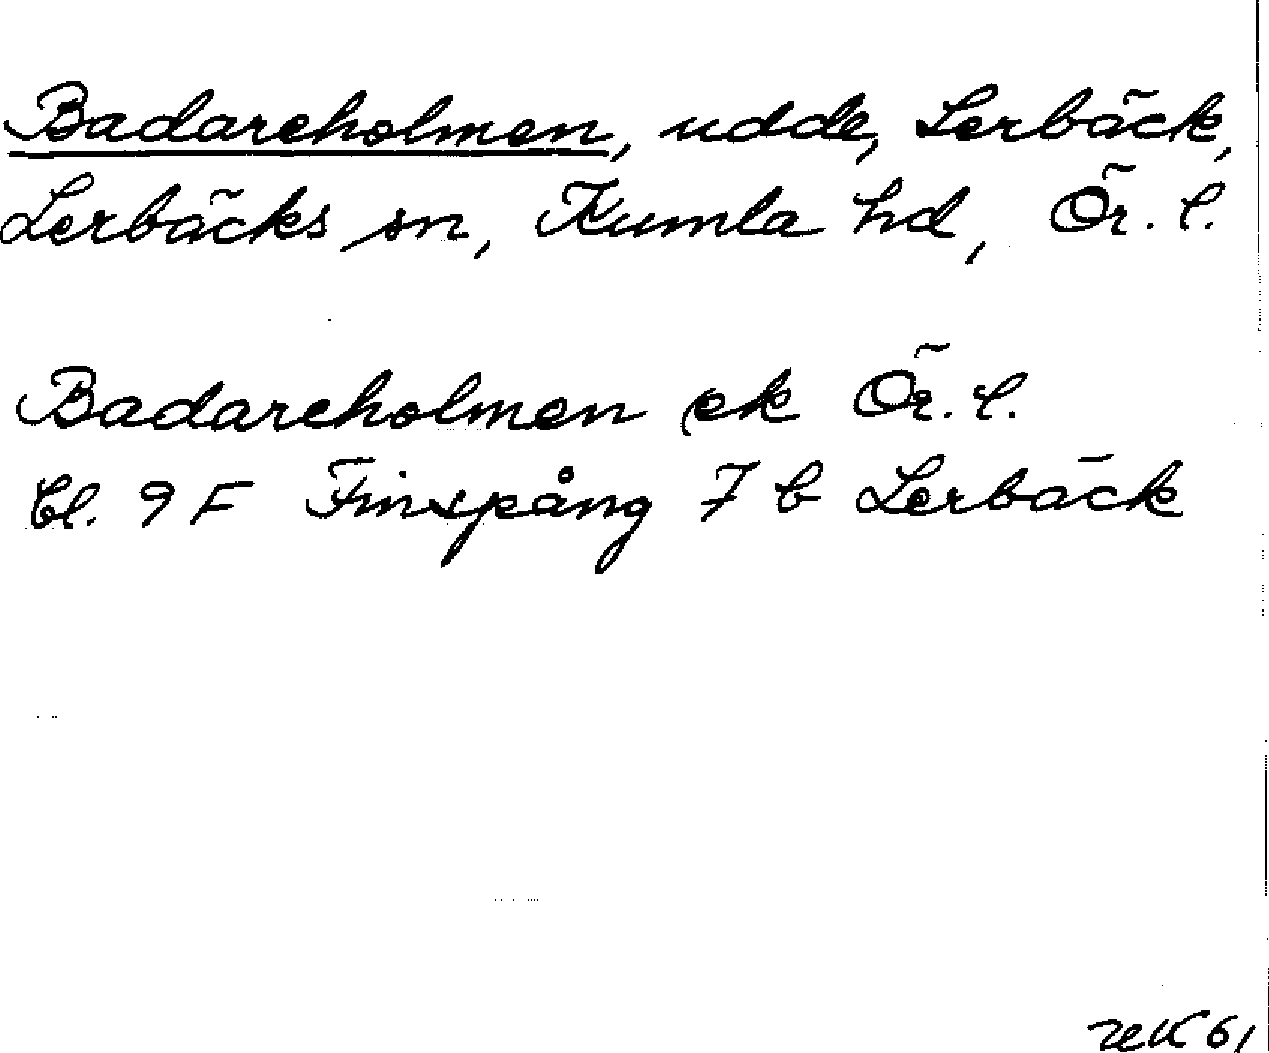 Badareholmen, udde, Lerbäck,
Lerbäcks sn, Kumla hd, Ör. l.
Badareholmen ek Ör. l.
bl. 9 F Finspång 7 b Lerbäck
rek 61